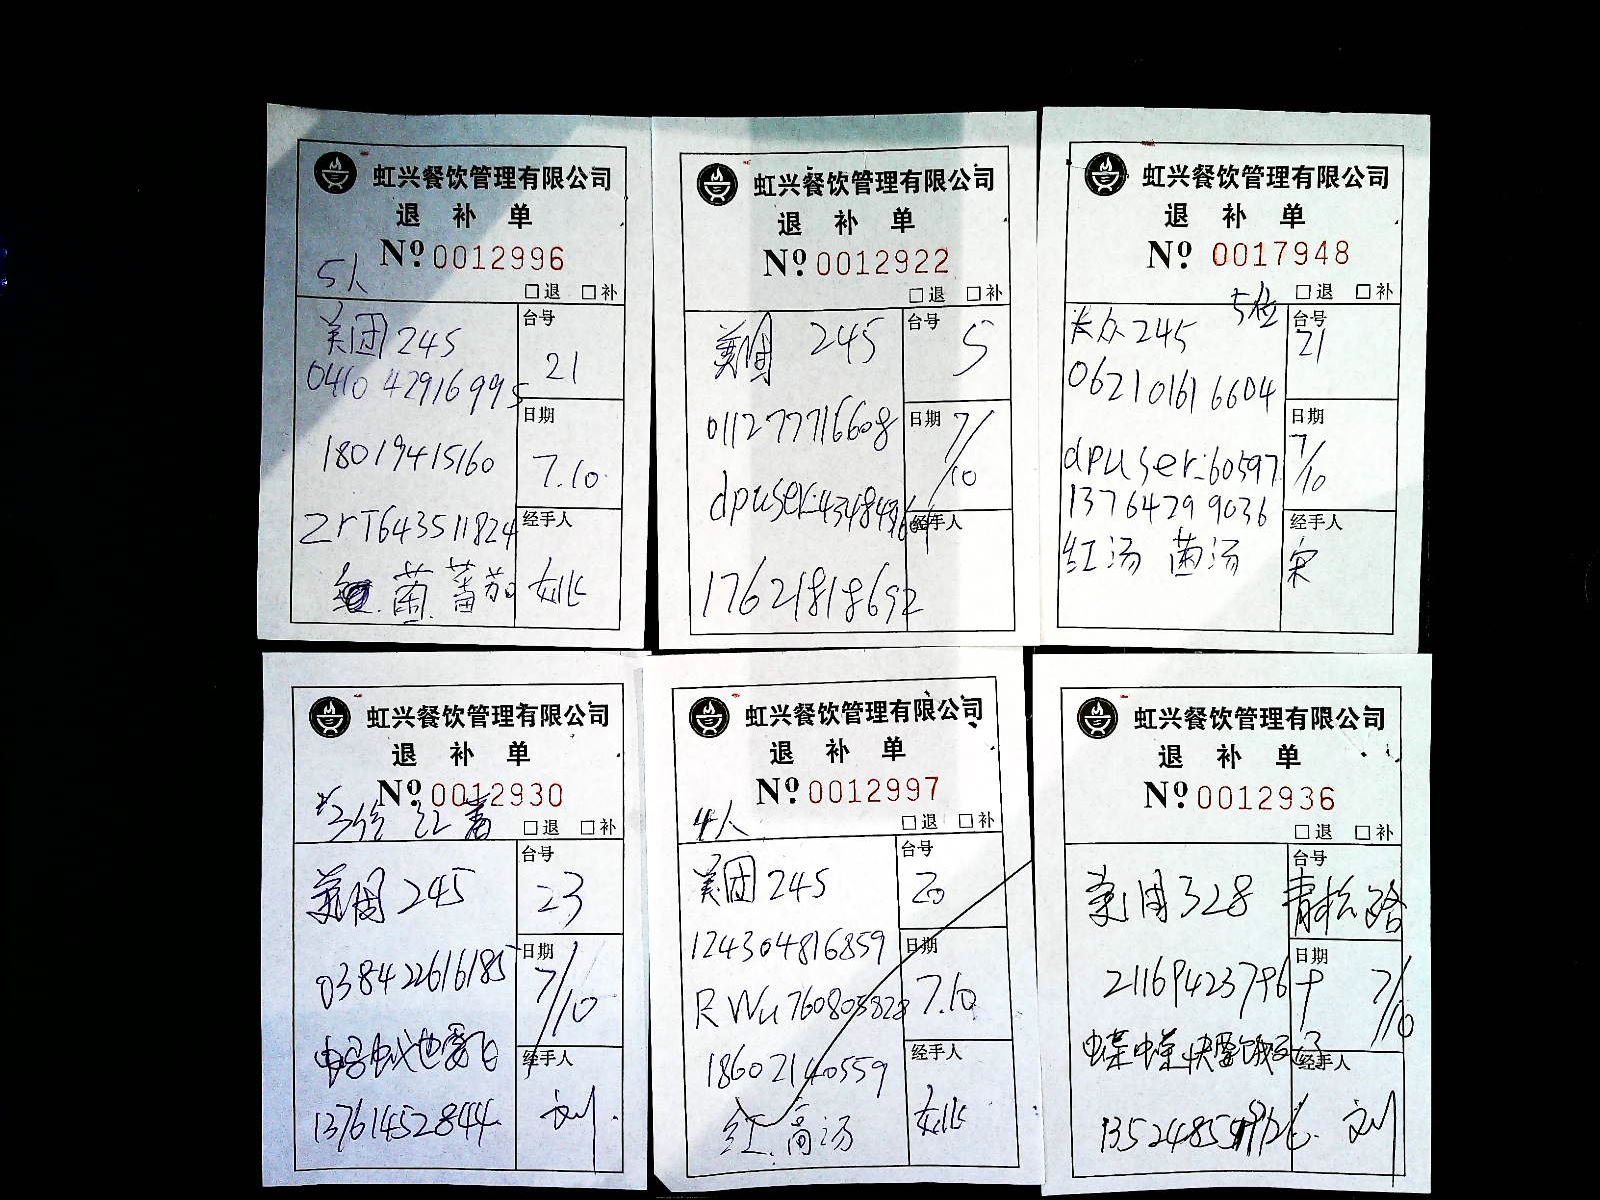 虹兴餐饮管理有限公司
退 补 单
Nº 0012996
5人
□退 □补
美团 245
台号
21
0410 42916995
日期
18019415160
7.10
zrT643511824
经手人
菌 蕃茄
姚
虹兴餐饮管理有限公司
退 补 单
Nº 0012922
□退 □补
美团 245
台号
5
011277716608
日期
7/10
dpuser:
经手人
17621818692
虹兴餐饮管理有限公司
退 补 单
Nº 0017948
□退 □补
5位
大众 245
台号
21
062101616604
日期
7/10
dpuser:60597
13764299036
经手人
红汤 菌汤
宋
虹兴餐饮管理有限公司
退 补 单
Nº 0012930
□退 □补
美团 245
台号
23
038422616185
日期
7/10
经手人
13761452844
刘
虹兴餐饮管理有限公司
退 补 单
Nº 0012997
4人
□退 □补
美团 245
台号
20
124304816859
日期
7.10
RWu760803828
18602140559
经手人
红 高汤
姚
虹兴餐饮管理有限公司
退 补 单
Nº 0012936
□退 □补
美团 328
台号
青松路
21169423796
日期
7/10
经手人
刘